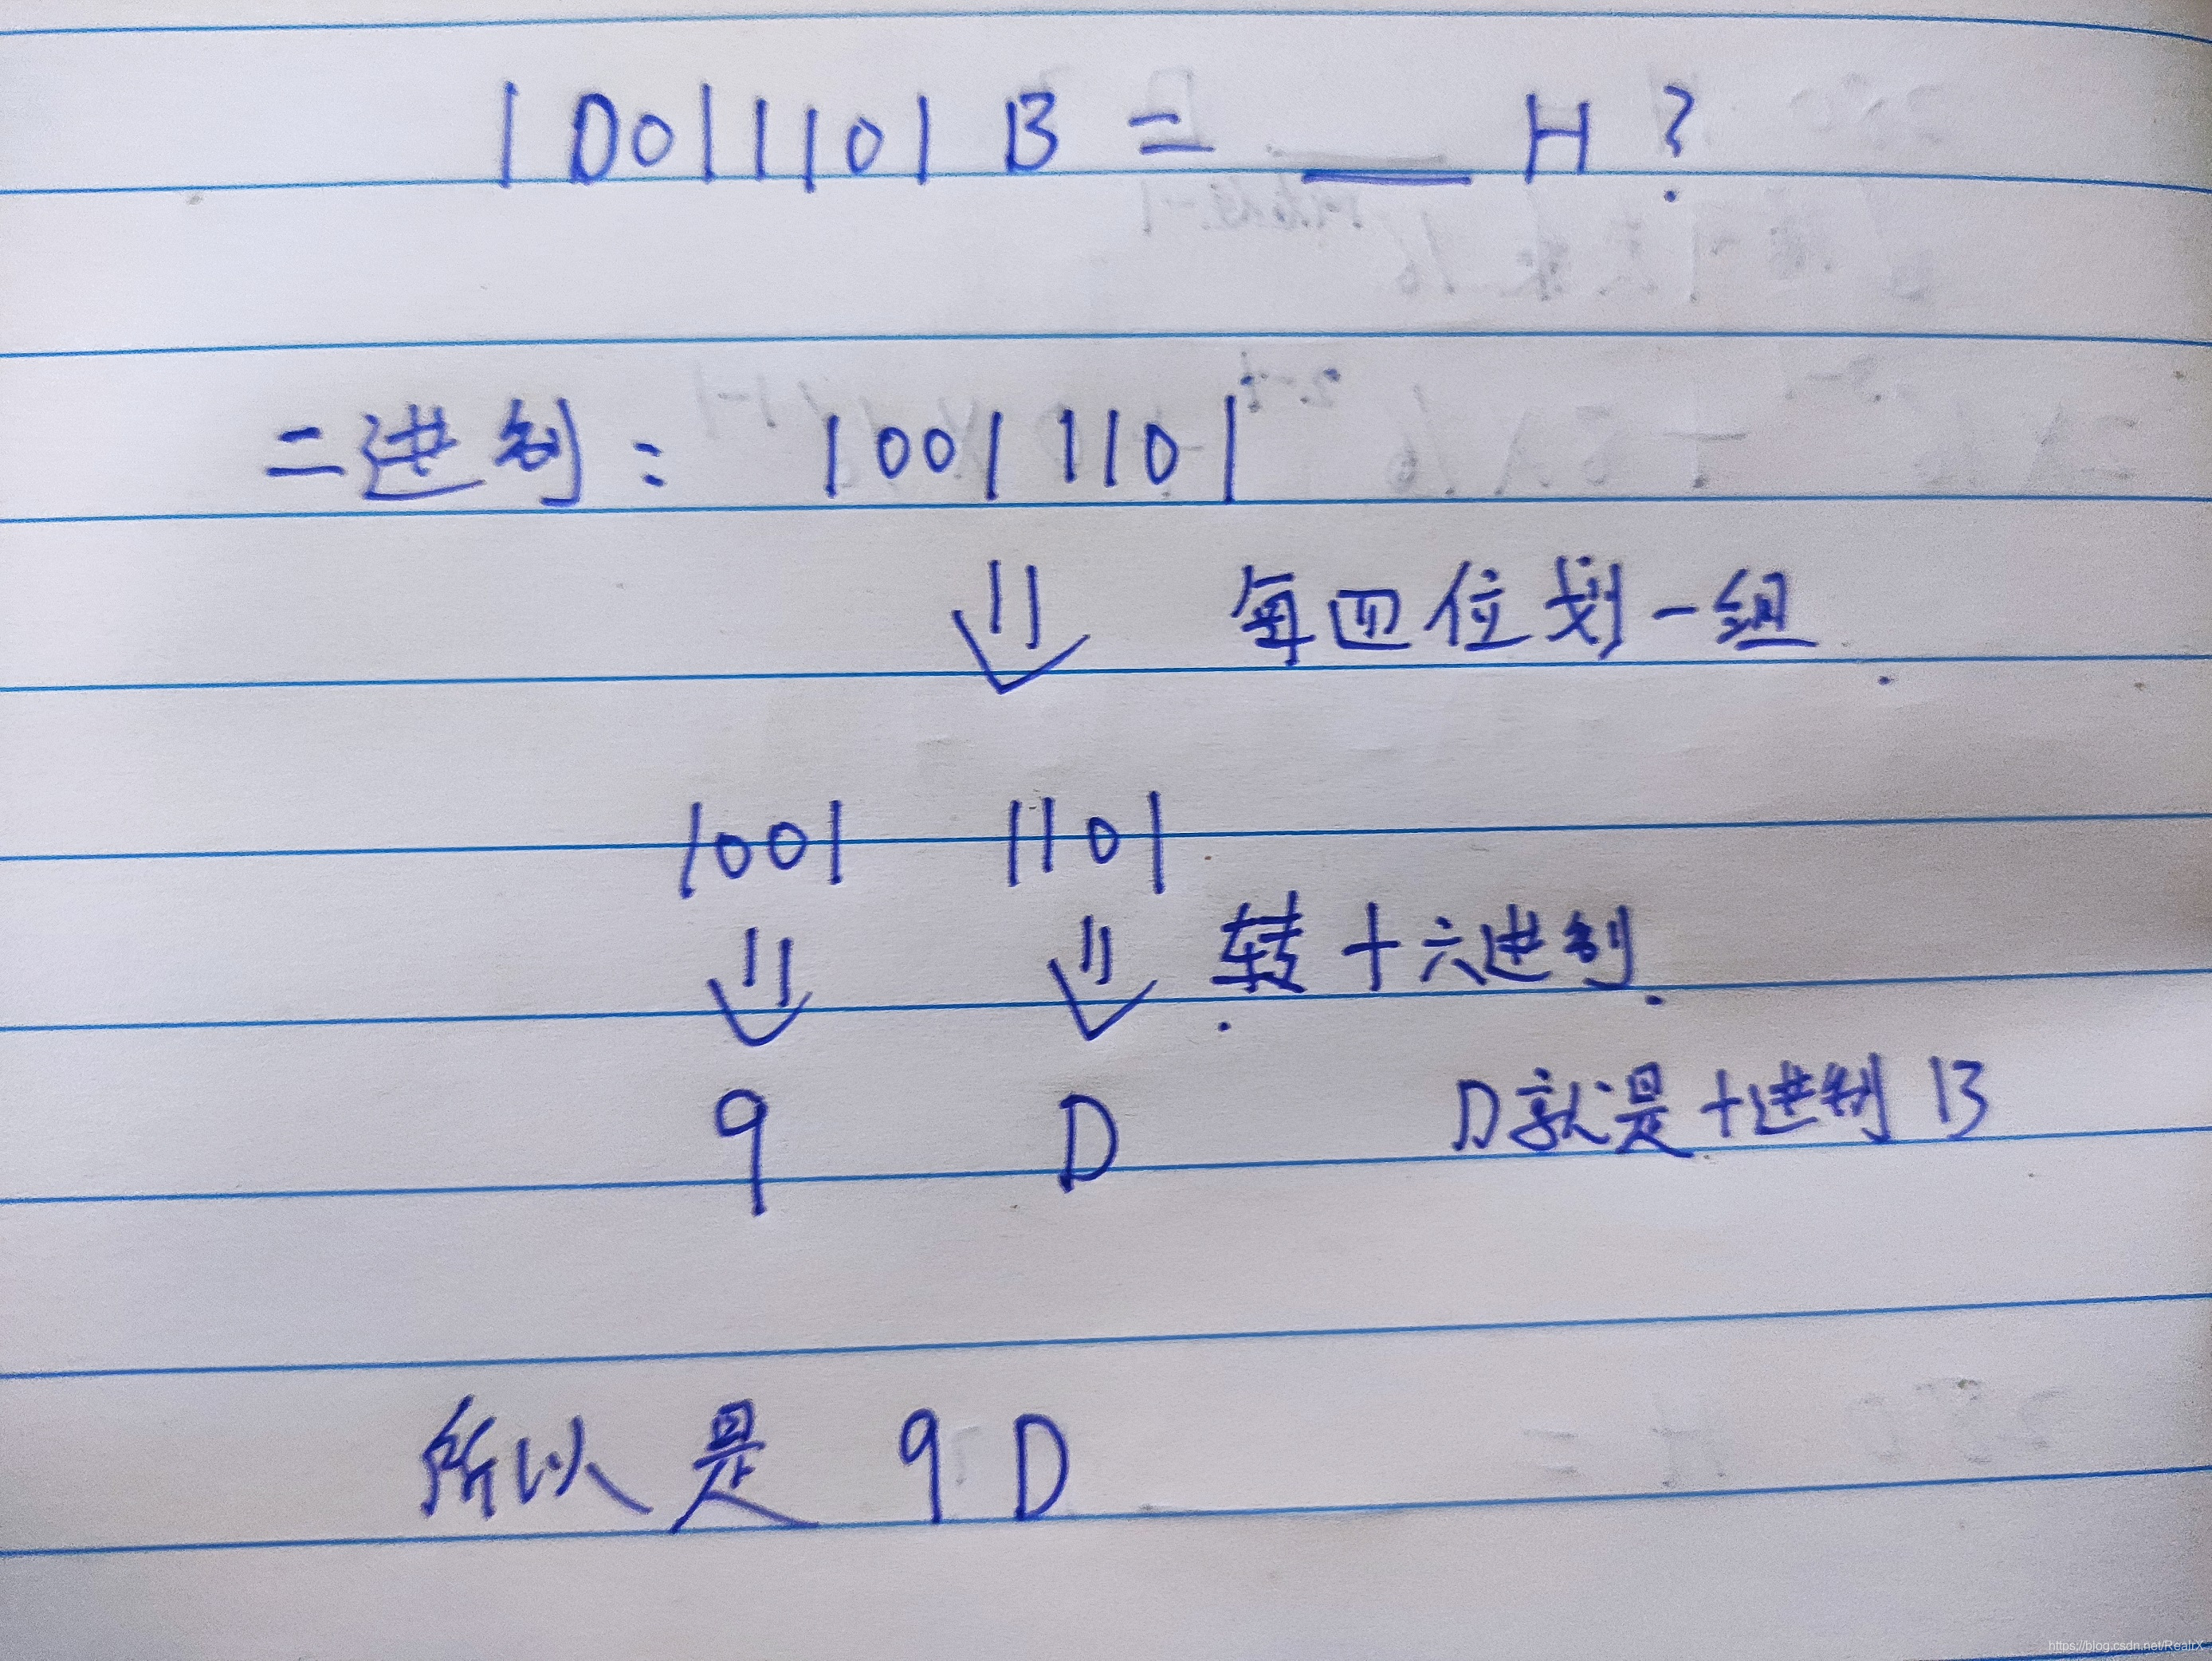 10011101 B = ___ H ?
二进制: 10011101
每四位划一组
1001 1101
转十六进制
9 D D就是十进制 13
所以是 9D
https://blog.csdn.net/RealrX